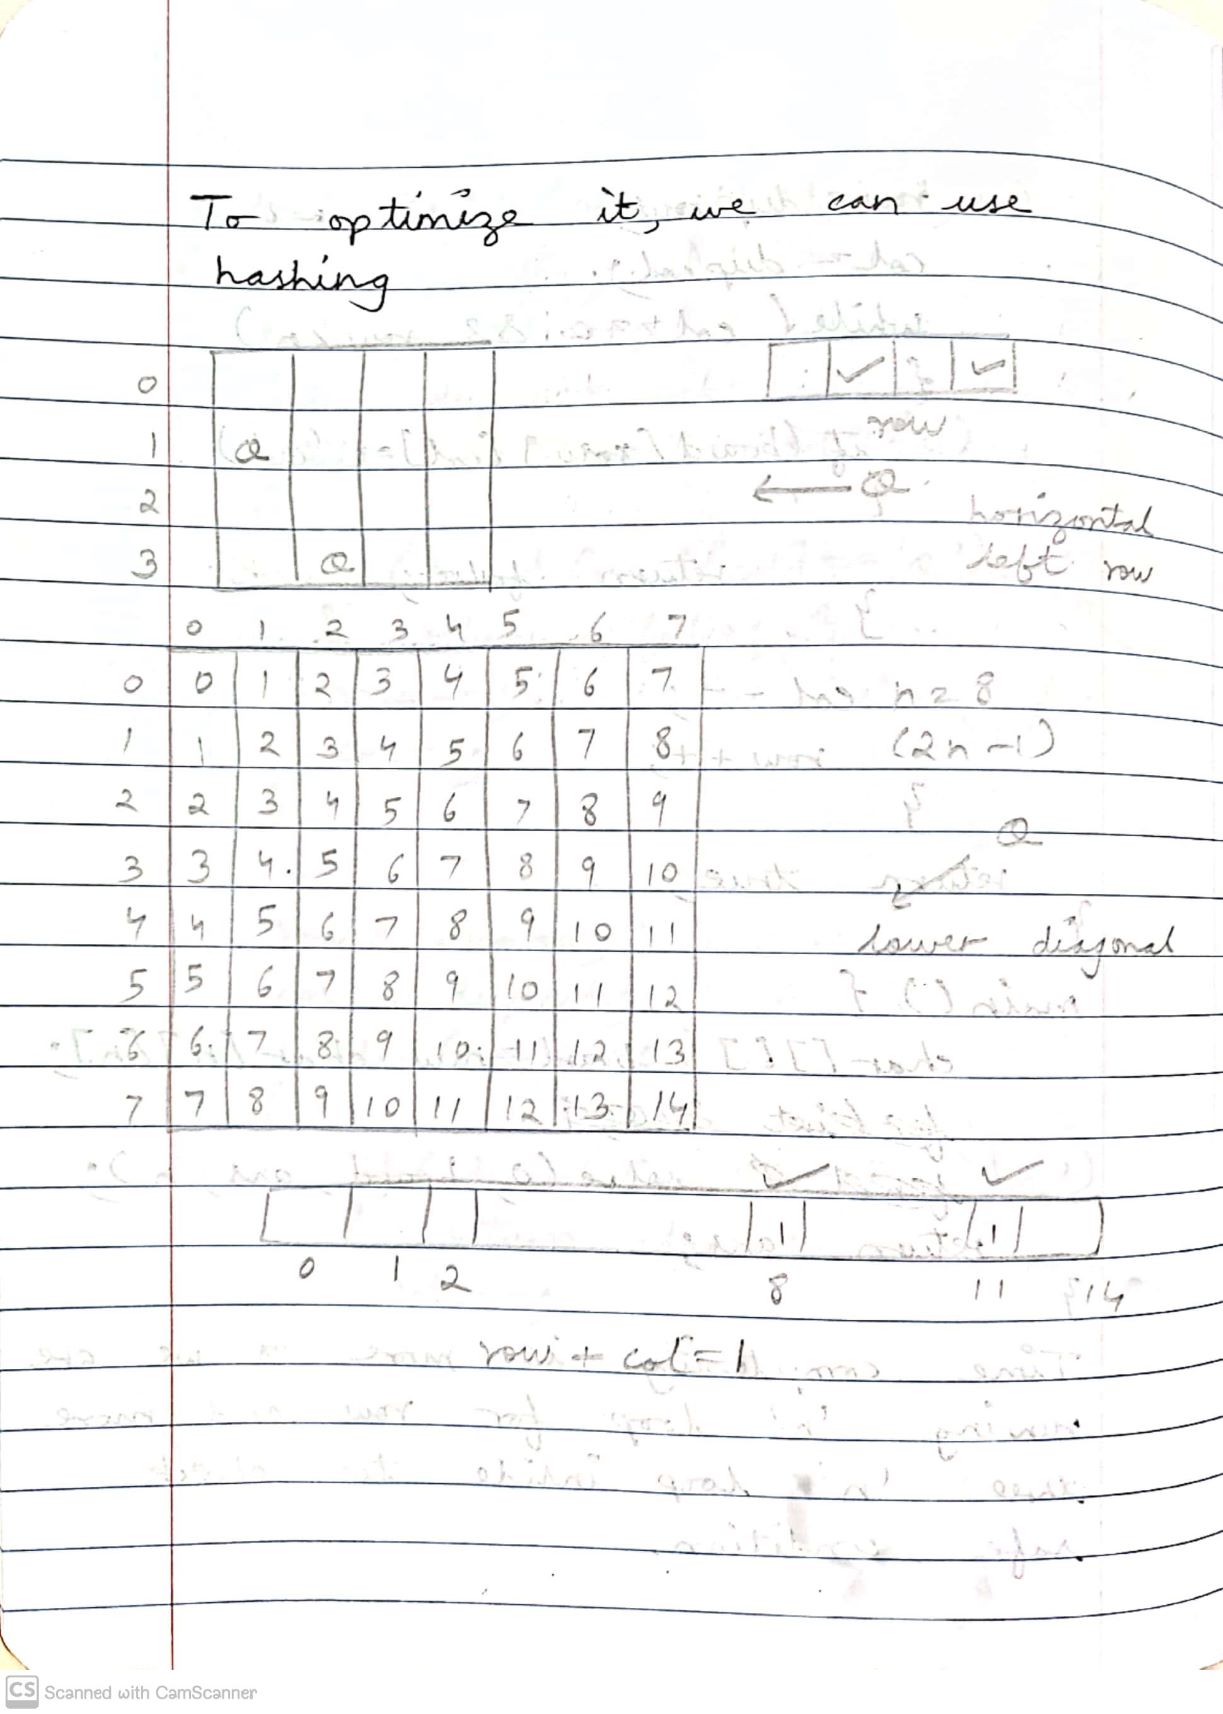 To optimize it, we can use
hashing
0
1 Q
2
3 Q
✓ ✓
row
← Q
horizontal
left row
0 1 2 3 4 5 6 7
0 0 1 2 3 4 5 6 7
1 1 2 3 4 5 6 7 8
2 2 3 4 5 6 7 8 9
3 3 4 5 6 7 8 9 10
4 4 5 6 7 8 9 10 11
5 5 6 7 8 9 10 11 12
6 6 7 8 9 10 11 12 13
7 7 8 9 10 11 12 13 14
n = 8
(2n-1)
Q
lower diagonal
✓ ✓
1 1
0 1 2 8 11 14
row + col = 1
CS Scanned with CamScanner